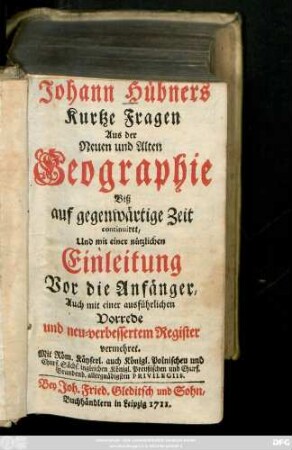 Johann Hübners
Kurtze Fragen
Aus der
Neuen und Alten
Geographie
Biß
auf gegenwärtige Zeit
continuiret,
Und mit einer nützlichen
Einleitung
Vor die Anfänger,
Auch mit einer ausführlichen
Vorrede
und neu-verbessertem Register
vermehret.
Mit Röm. Käyserl. auch Königl. Polnischen und
Churf. Sächs. ingleichen Königl. Preußischen und Churf.
Brandenb. allergnädigsten PRIVILEGIIS.
Bey Joh. Fried. Gleditsch und Sohn,
Buchhändlern in Leipzig 1711.